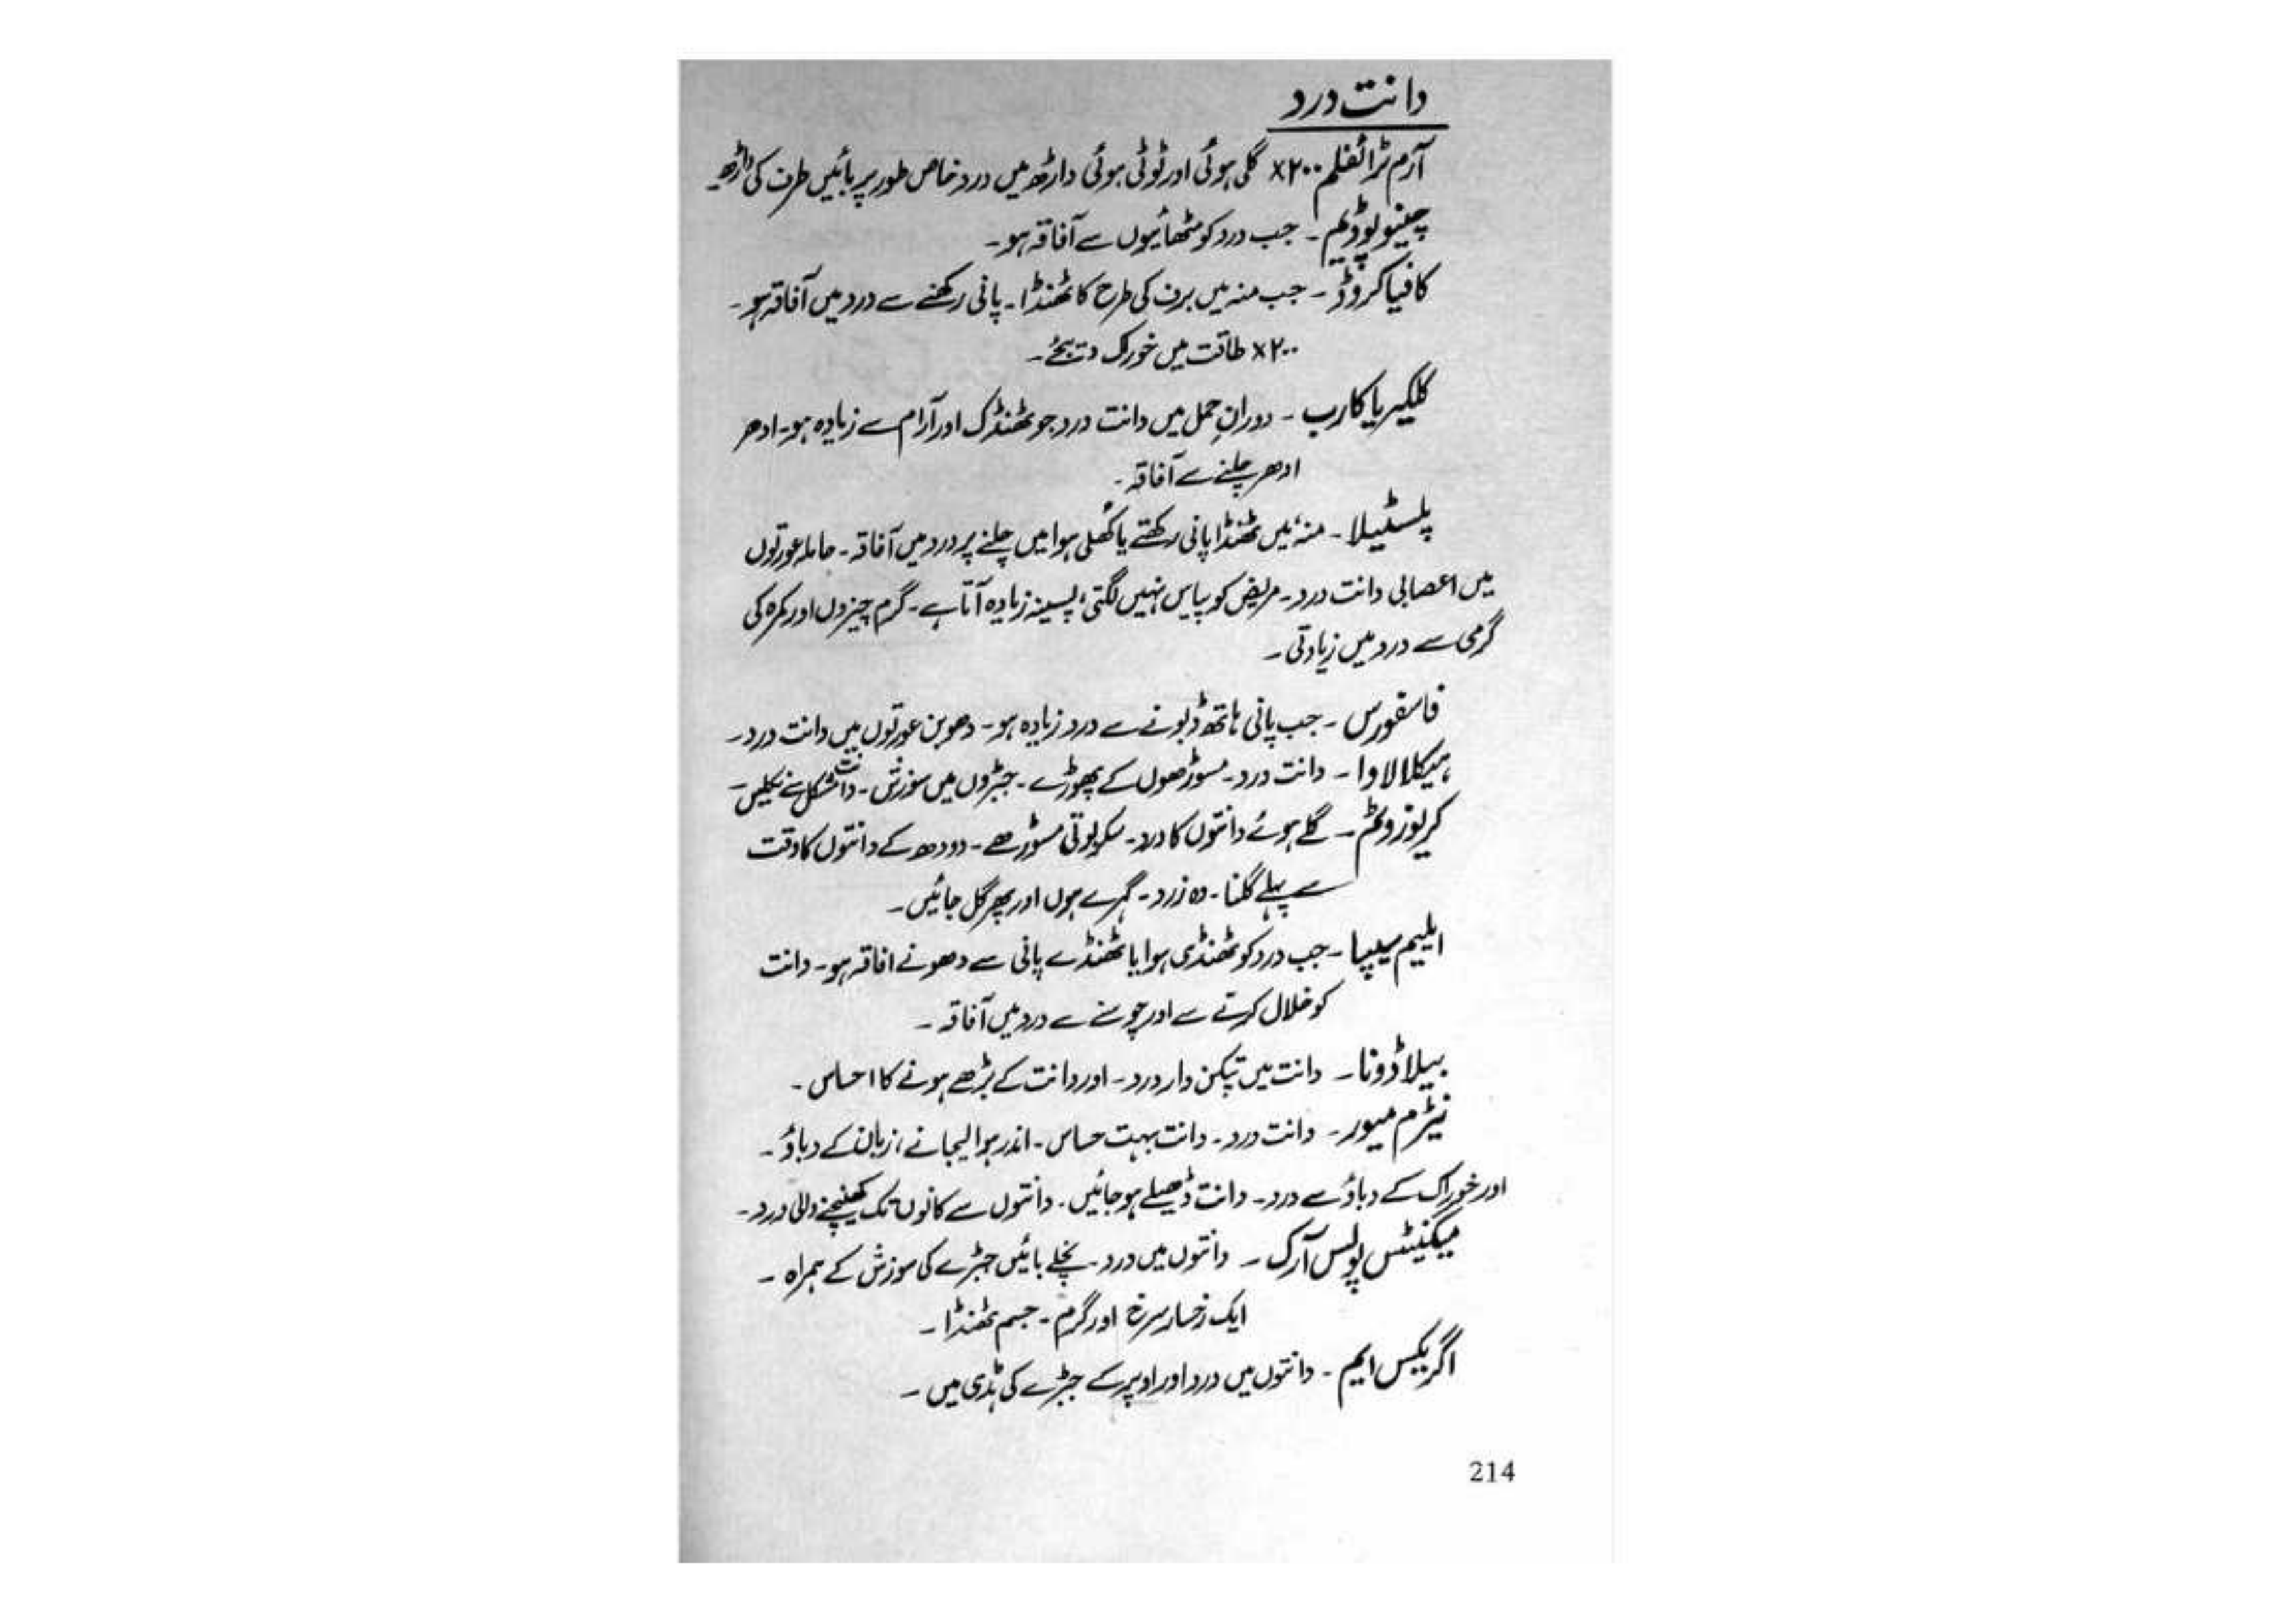 دانت درد
آرم ٹرائفلم ۲۰۰x گلی ہوئی اور ٹوٹی ہوئی داڑھ میں درد خاص طور پر بائیں طرف کی داڑھ
چینوپوڈیم۔ جب درد کو مٹھائیوں سے آفاقہ ہو۔
کافیا کروڈ ۔ جب منہ میں برف کی طرح کا ٹھنڈا۔ پانی رکھنے سے درد میں آفاقہ ہو۔
۲۰۰x طاقت میں خورک دیجئے۔
کلکیریا کارب ۔ دورانِ حمل میں دانت درد جو ٹھنڈک اور آرام سے زیادہ ہو۔ ادھر
ادھر چلنے سے آفاقہ ۔
پلسٹیلا ۔ منہ میں ٹھنڈا پانی رکھتے یا کُھلی ہوا میں چلنے پر درد میں آفاقہ ۔ حاملہ عورتوں
میں اعصابی دانت درد۔ مریض کو پیاس نہیں لگتی، پسینہ زیادہ آتا ہے۔ گرم چیزوں اور کمرہ کی
گرمی سے درد میں زیادتی۔
فاسفورس ۔ جب پانی ہاتھ ڈبونے سے درد زیادہ ہو۔ دھوبن عورتوں میں دانت درد۔
ہیکلا لاوا ۔ دانت درد۔ مسوڑھوں کے پھوڑے ۔ جبڑوں میں سوزش ۔ دانت مشکل سے نکلیں۔
کریوزوٹم ۔ گلے ہوئے دانتوں کا درد۔ سکربوتی مسوڑھے ۔ دودھ کے دانتوں کا وقت
سے پہلے گلنا۔ وہ زرد۔ گہرے ہوں اور پھر گل جائیں۔
ایلیم سیپا ۔ جب درد کو ٹھنڈی ہوا یا ٹھنڈے پانی سے دھونے افاقہ ہو۔ دانت
کو خلال کرتے سے اور چوسنے سے درد میں آفاقہ ۔
بیلاڈونا ۔ دانت میں تپکن دار درد۔ اور دانت کے بڑھے ہونے کا احساس ۔
نیٹرم میور ۔ دانت درد۔ دانت بہت حساس ۔ اندر ہوا لیجانے، زبان کے دباؤ ۔
اور خوراک کے دباؤ سے درد۔ دانت ڈھیلے ہو جائیں۔ دانتوں سے کانوں تک کھینچنے والی درد۔
میگنیٹس پولس آرک ۔ دانتوں میں درد۔ نچلے بائیں جبڑے کی سوزش کے ہمراہ ۔
ایک رخسار سرخ اور گرم ۔ جسم ٹھنڈا ۔
اگریکس ایم ۔ دانتوں میں درد اور اوپر کے جبڑے کی ہڈی میں ۔
214